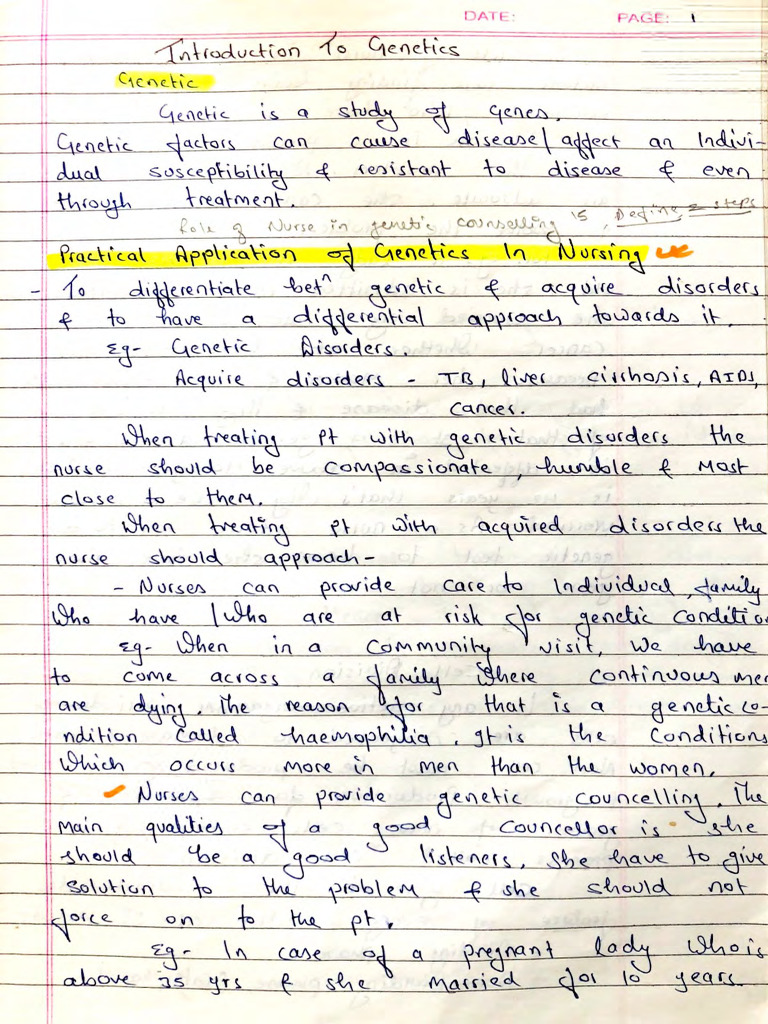 DATE: PAGE: 1
Introduction To Genetics
Genetic
Genetic is a study of Genes.
Genetic factors can cause disease/affect an Indivi-
dual susceptibility & resistant to disease & even
through treatment.
Role of Nurse in genetic counselling 15, Define 2 steps
Practical Application of Genetics In Nursing
- To differentiate betn genetic & acquire disorders
& to have a differential approach towards it.
Eg- Genetic Disorders.
Acquire disorders - TB, liver cirrhosis, AIDS,
cancer.
When treating Pt with genetic disorders the
nurse should be compassionate, humble & most
close to them.
When treating Pt with acquired disorders the
nurse should approach-
- Nurses can provide care to Individual, family
Who have / Who are at risk for genetic conditio
Eg- When in a community visit, we have
to come across a family where continuous men
are dying. The reason for that is a genetic co-
ndition called haemophilia. It is the conditions
which occurs more in men than the women.
Nurses can provide genetic councelling. The
main qualities of a good councellor is she
should be a good listeners. She have to give
solution to the problem & she should not
force on to the pt.
Eg- In case of a pregnant lady who is
above 35 yrs & she married for 10 years.